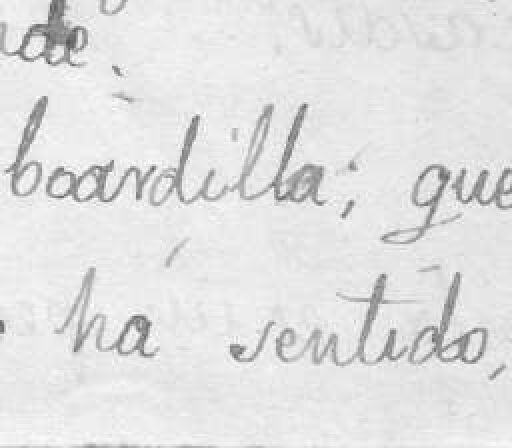 boardilla; que
há sentido,